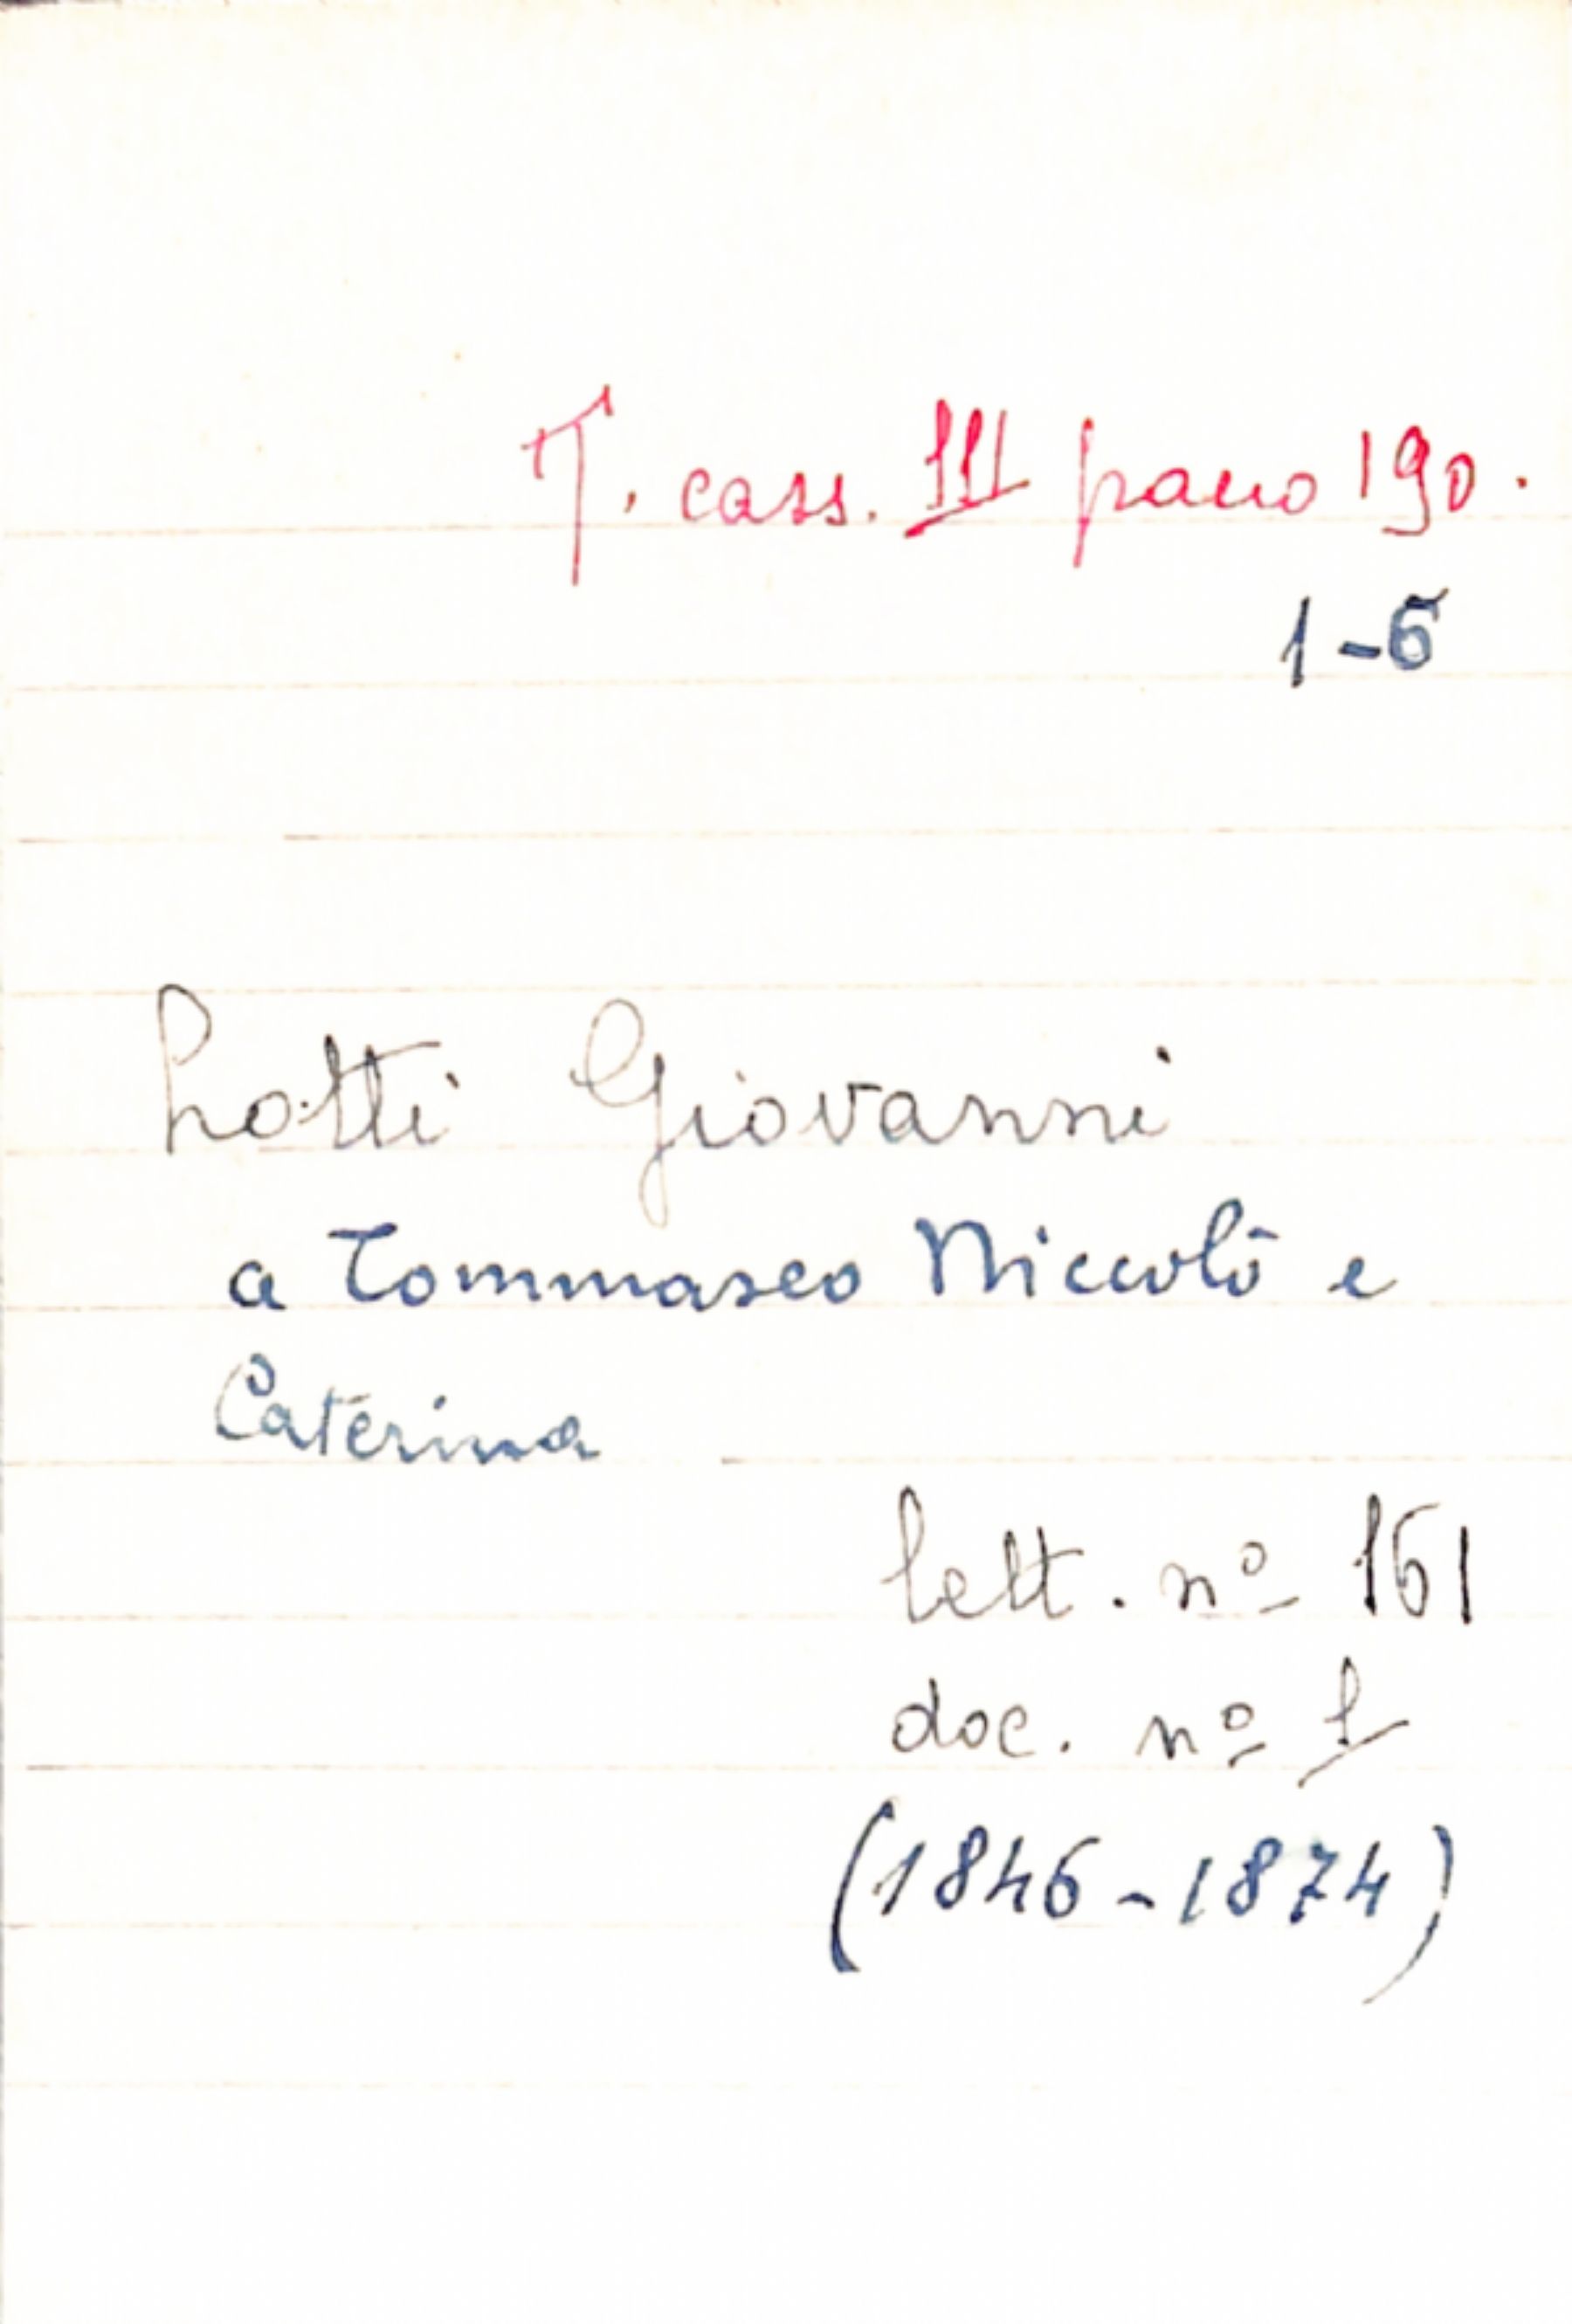 T. cass. III pacco 190.
1-6
Lotti Giovanni
a Tommaseo Niccolò e
Caterina
lett. nº 161
doc. nº 1
(1846-1874)